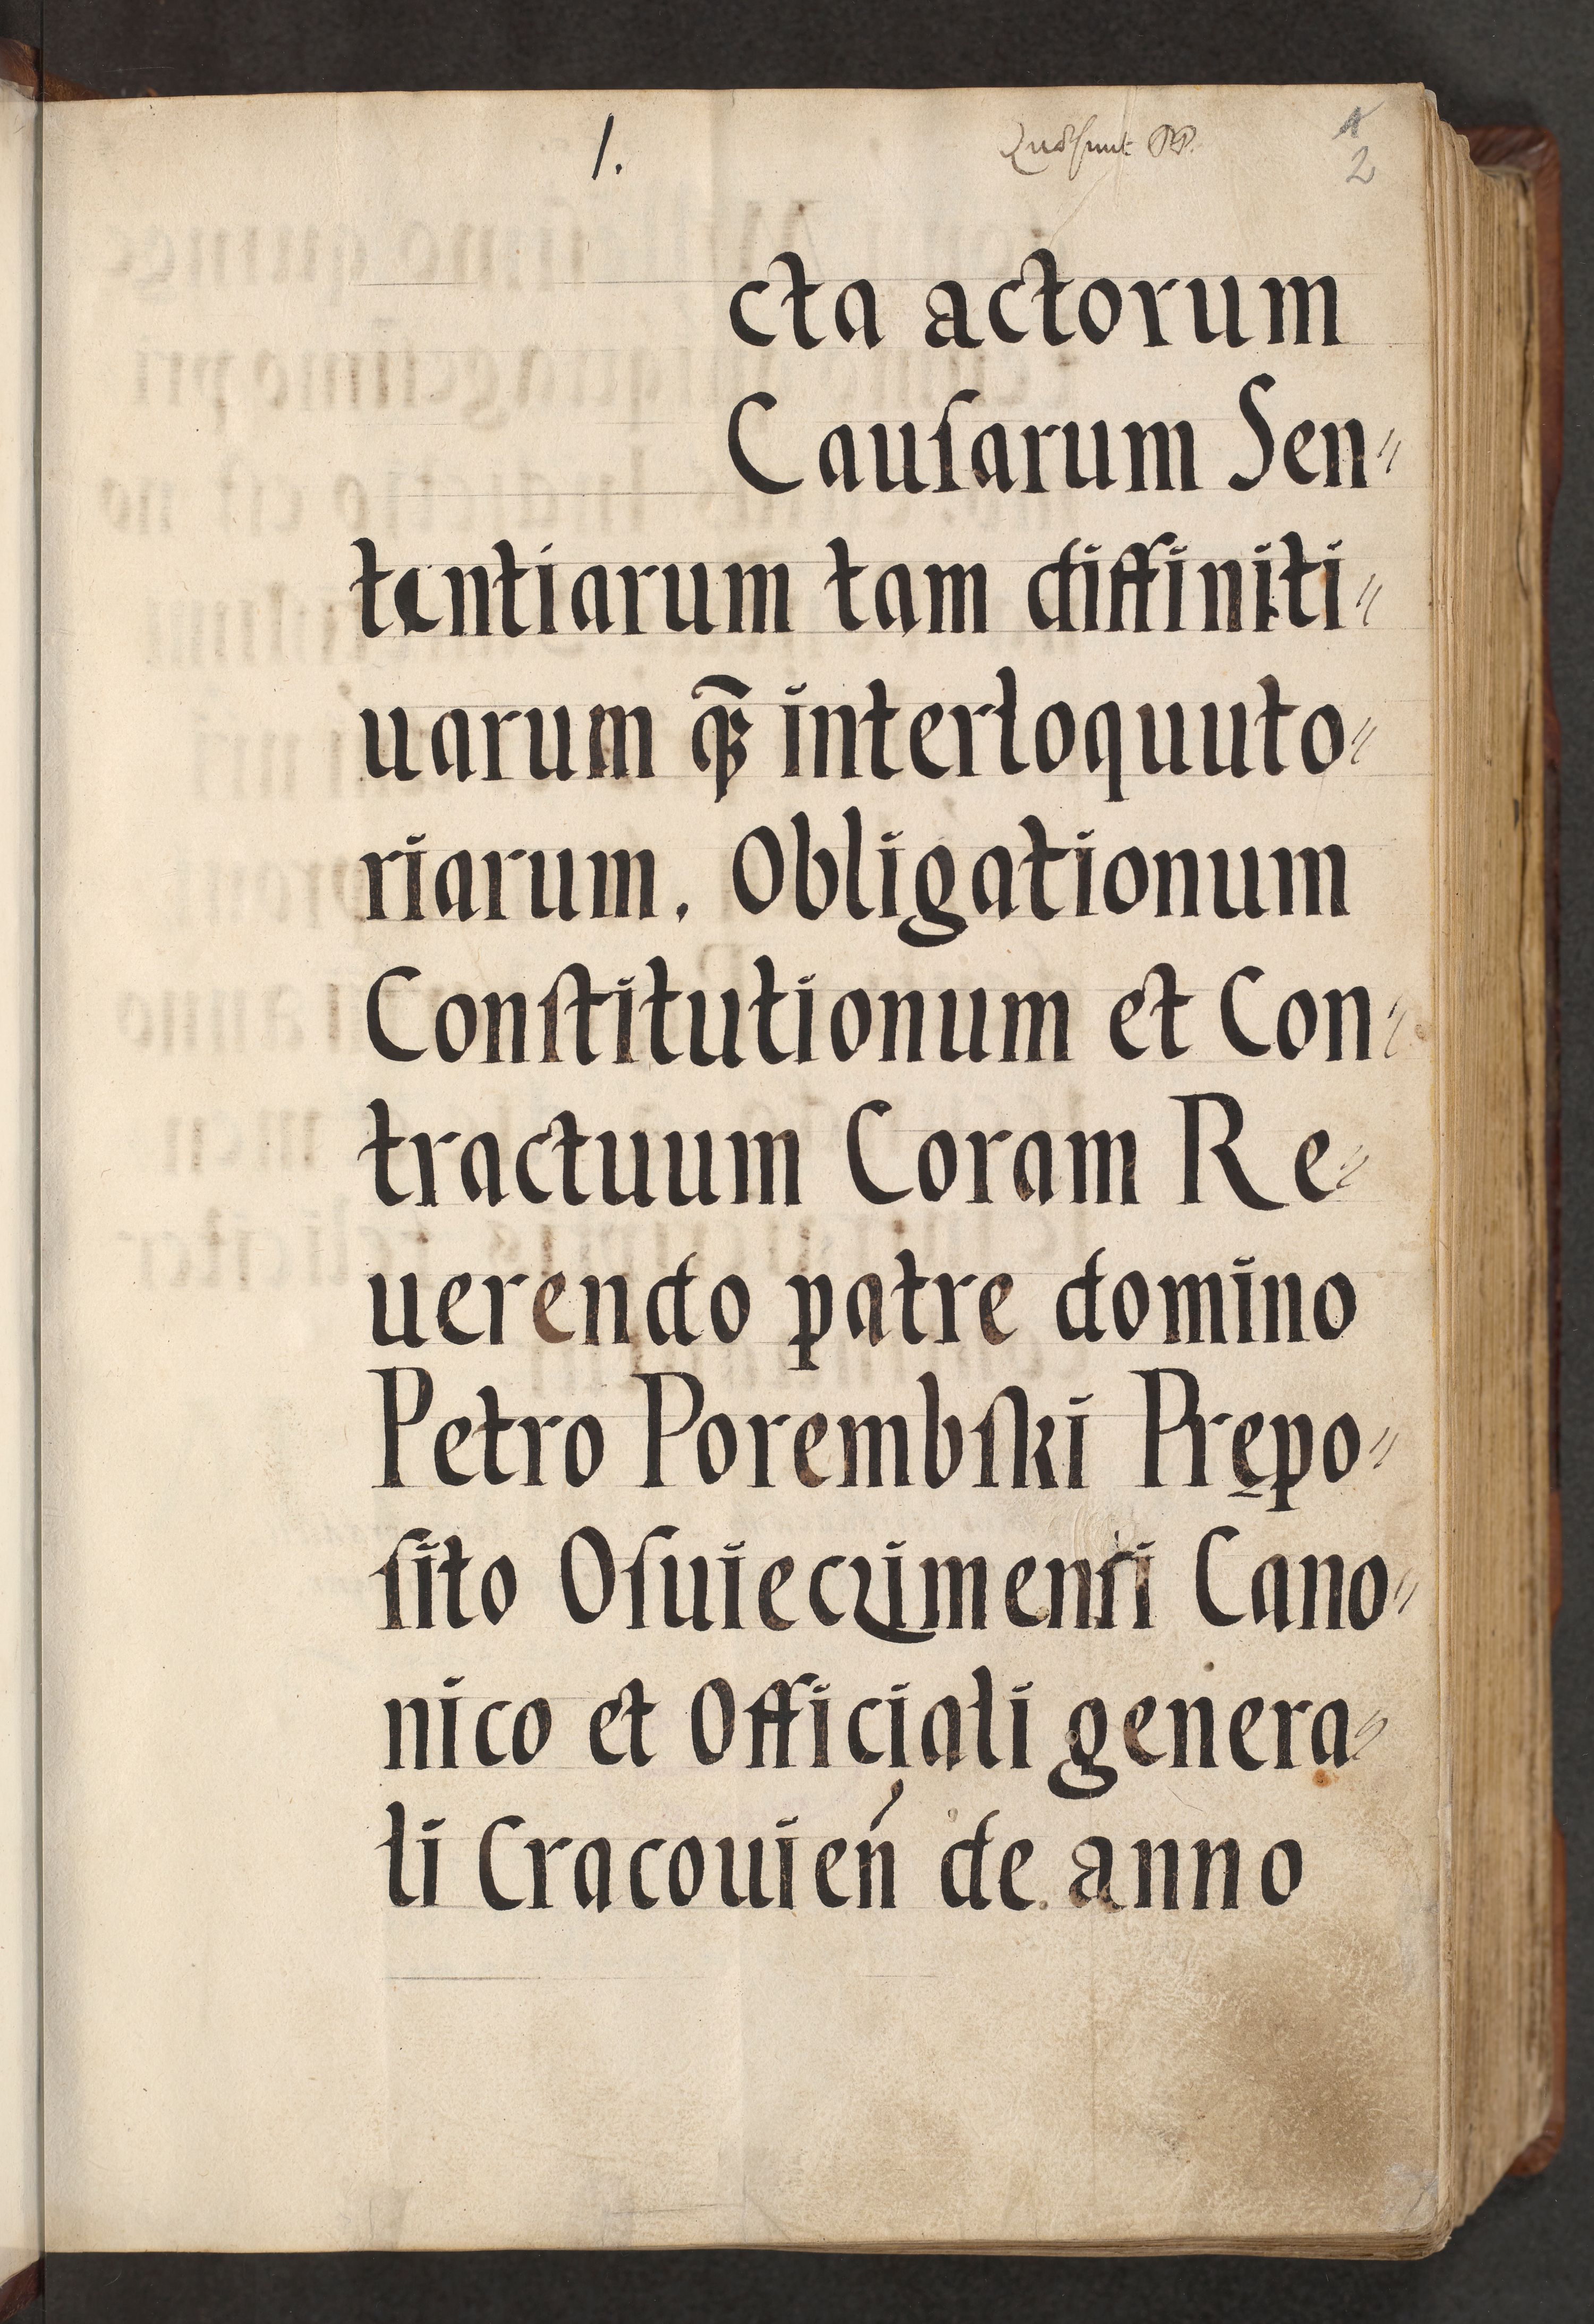 1.
1
2
cta actorum
Cauſarum Sen〃
tentiarum tam diffiniti〃
uarum qꝫ̃ interloquuto〃
riarum. Obligationum
Conſtitutionum et Con〃
tractuum Coram Re〃
uerendo patre domino
Petro Porembſki Prępo〃
ſito Oſuieczimenſi Cano〃
nico et Officiali genera〃
li Cracouień de anno